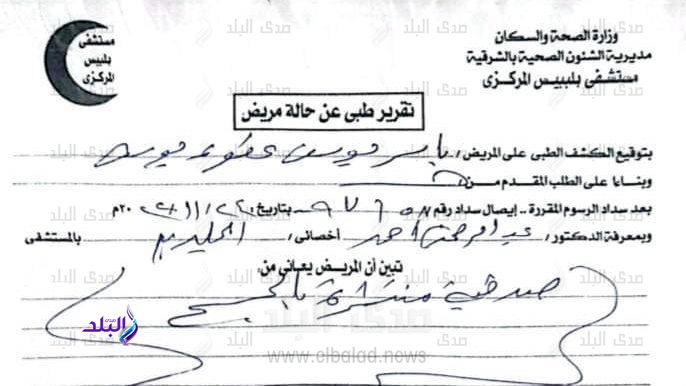 وزارة الصحة والسكان
مديرية الشئون الصحية بالشرقية
مستشفى بلبيس المركزى
مستشفى
بلبيس
المركزى
تقرير طبى عن حالة مريض
بتوقيع الكشف الطبى على المريض / ياسر
وبناءا على الطلب المقدم من
بعد سداد الرسوم المقررة .. إيصال سداد رقم بتاريخ ٢٠م
وبمعرفة الدكتور / عبد الرحمن أحمد أخصائى / الجلدية بالمستشفى
تبين أن المريض يعانى من :
صدفية منتشرة بالجسم
صدى البلد
www.elbalad.news